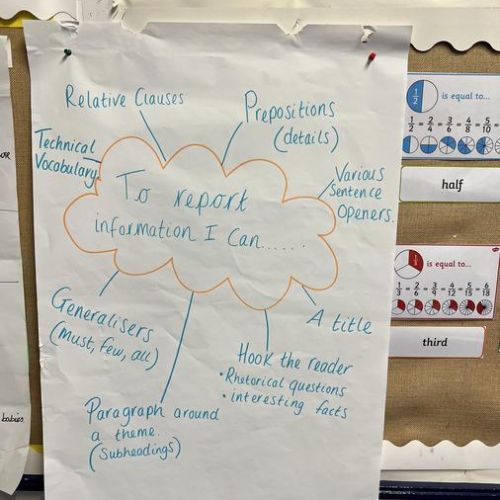 Relative Clauses
Prepositions
(details)
Technical
Vocabulary
Various
Sentence
Openers.
To report
information I can......
Generalisers
(must, few, all)
A title
Hook the reader
• Rhetorical questions
• interesting facts
Paragraph around
a theme.
(Subheadings)
OR
babies
1/2 is equal to...
1/2 = 2/4 = 3/6 = 4/8 = 5/10 =
half
1/3 is equal to...
1/3 = 2/6 = 3/9 = 4/12 = 5/15 = 6/18
third